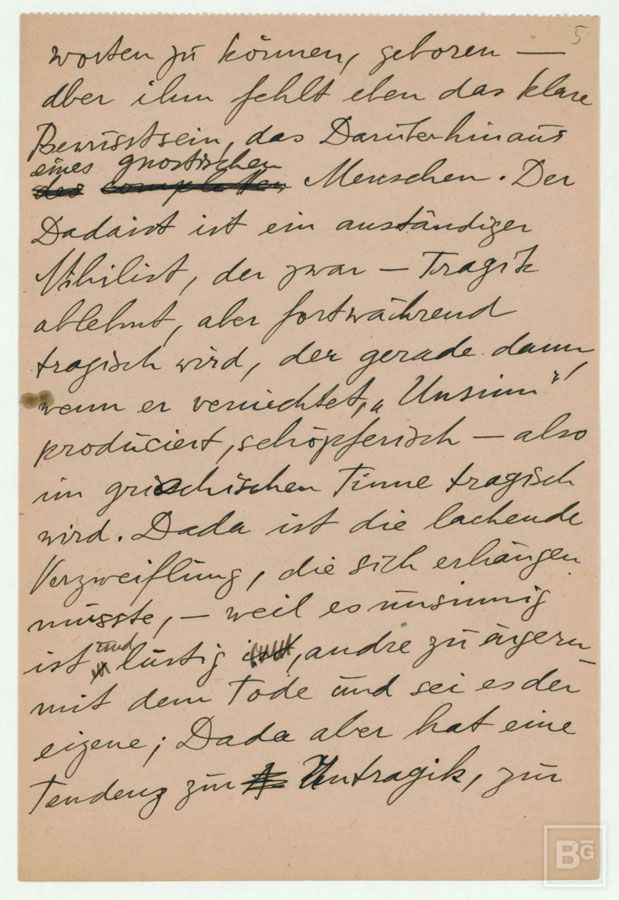 5
worten zu können, geboren —
aber ihm fehlt eben das klare
Bewusstsein, das Darüberhinaus
eines gnostischen
des completten Menschen. Der
Dadaist ist ein anständiger
Nihilist, der zwar – Tragik
ablehnt, aber fortwährend
tragisch wird, der gerade dann,
wenn er vernichtet, „Unsinn"
produciert, schöpferisch – also
im griechischen Sinne tragisch
wird. Dada ist die lachende
Verzweiflung, die sich erhängen
müsste, – weil es unsinnig
ist und lustig ist, andre zu ärgern
mit dem Tode und sei es der
eigene; Dada aber hat eine
Tendenz zur Untragik, zur
BG